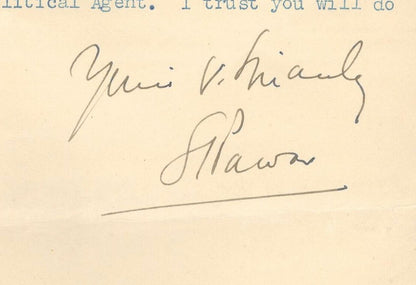 litical Agent. I trust you will do
Yours V. Sincerely
SPawar